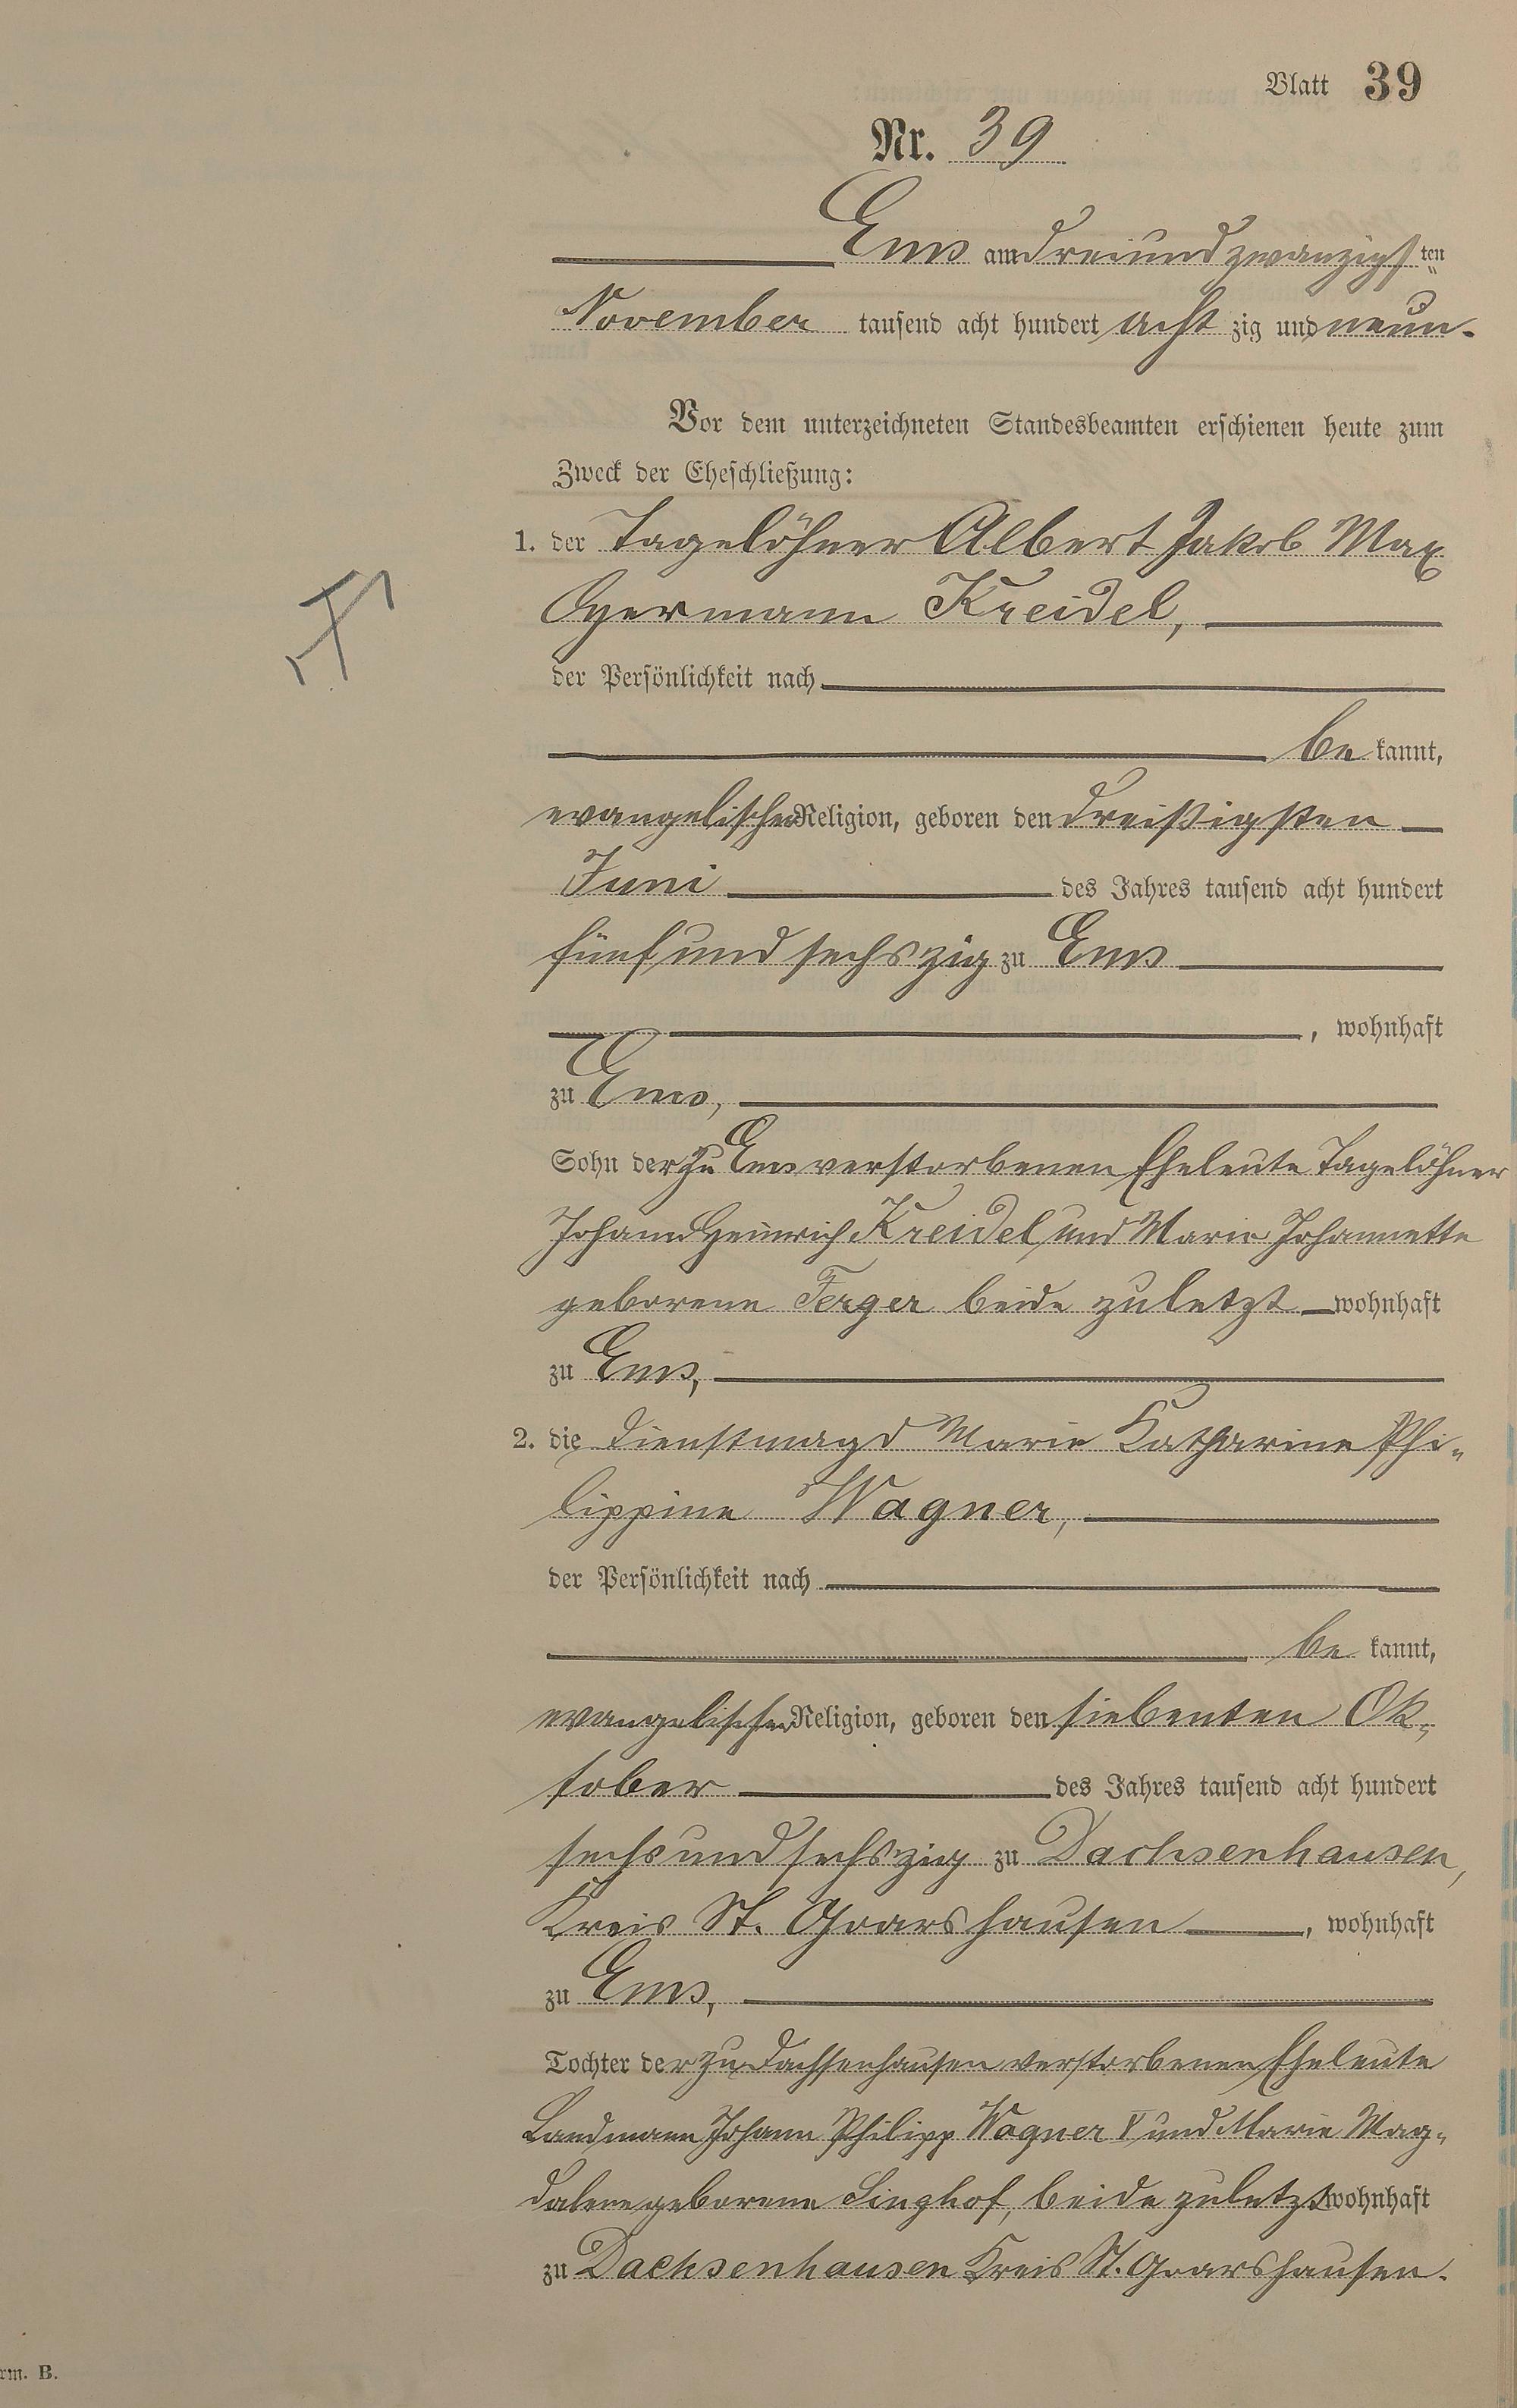 Blatt 39
Nr. 39
Ems am dreiundzwanzigsten
November tausend acht hundert acht zig und neun.
Vor dem unterzeichneten Standesbeamten erschienen heute zum
Zweck der Eheschließung:
1. der Tagelöhner Albert Jakob Max
Hermann Kreidel,
der Persönlichkeit nach
be kannt,
evangelischer Religion, geboren den dreißigsten
Juni des Jahres tausend acht hundert
fünf und sechszig zu Ems
, wohnhaft
zu Ems,
Sohn der zu Ems verstorbenen Eheleute Tagelöhner
Johann Heinrich Kreidel und Marie Johannette
geborene Ferger beide zuletzt wohnhaft
zu Ems,
2. die Dienstmagd Marie Katharine Phi-
lippine Wagner,
der Persönlichkeit nach
be kannt,
evangelischer Religion, geboren den siebenten Ok-
tober des Jahres tausend acht hundert
sechs und sechszig zu Dachsenhausen,
Kreis St. Goarshausen, wohnhaft
zu Ems,
Tochter der zu Dachsenhausen verstorbenen Eheleute
Landmann Johann Philipp Wagner V und Marie Mag-
dalene geborene Singhof, beide zuletzt wohnhaft
zu Dachsenhausen Kreis St. Goarshausen.
rm. B.